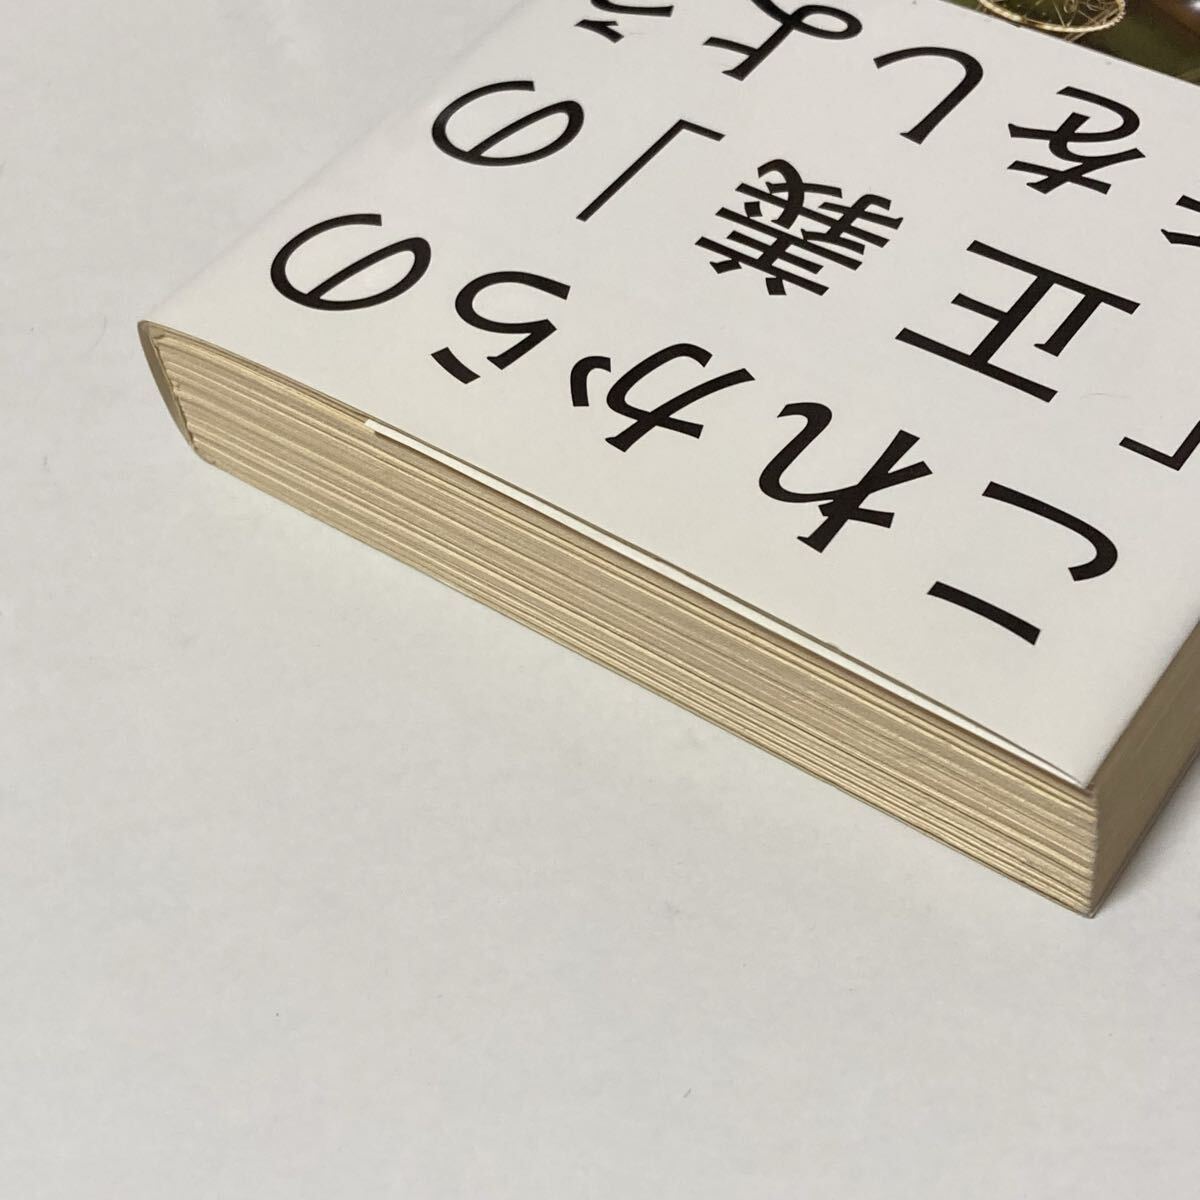 これからの
「正義」の
をしよう